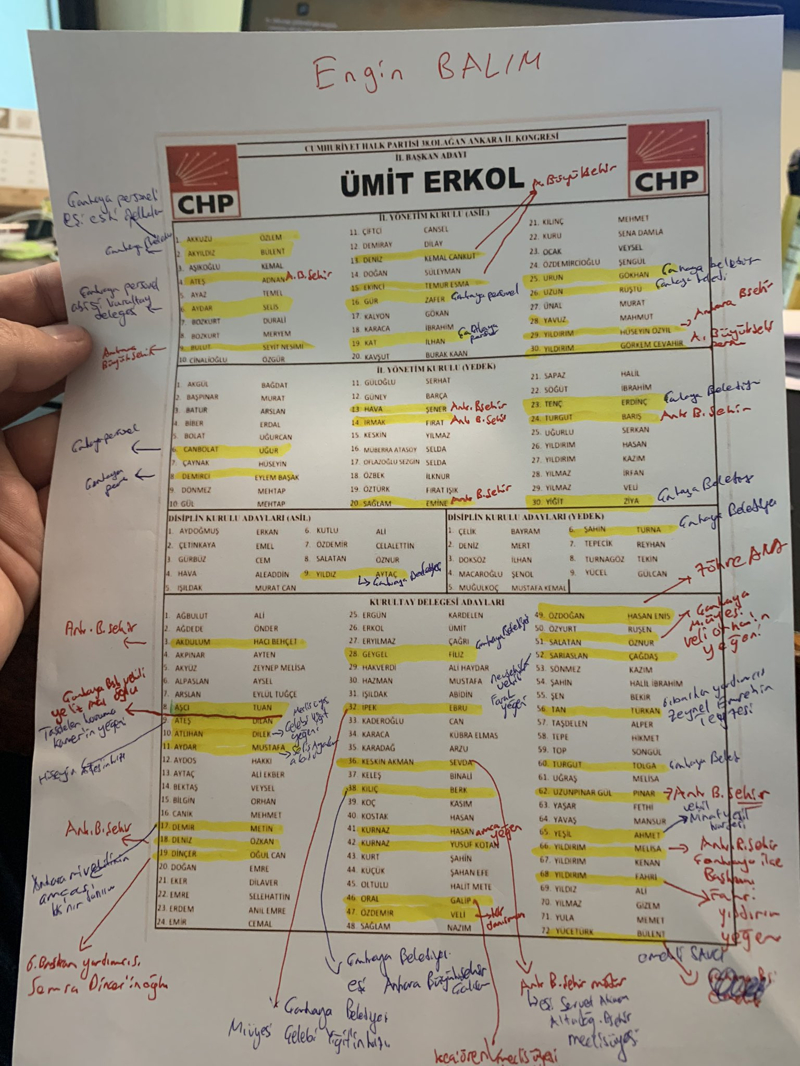 Engin BALIM
CUMHURİYET HALK PARTİSİ 38.OLAĞAN ANKARA İL KONGRESİ
İL BAŞKAN ADAYI
ÜMİT ERKOL
CHP
CHP
A. Büyükşehir
İL YÖNETİM KURULU (ASİL)
1. AKKUZU ÖZLEM
2. AKYILDIZ BÜLENT
3. AŞKOĞLU KEMAL
4. ATEŞ ADNAN A.B.Şehir
5. AYAZ TEMEL
6. AYDAR SELİS
7. BOZKURT DURALİ
8. BOZKURT MERYEM
9. BULUT SEYİT NESİMİ
10. CİNALİOĞLU ÖZGÜR
11. ÇİFTCİ CANSEL
12. DEMİRAY DİLAY
13. DENİZ KEMAL CANKUT
14. DOĞAN SÜLEYMAN
15. EKİNCİ TEMUR ESMA
16. GÜR ZAFER Çankaya personel
17. KALYON GÖKAN
18. KARACA İBRAHİM
19. KAT İLHAN Çankaya
20. KAVŞUT BURAK KAAN
21. KILINÇ MEHMET
22. KURU SENA DAMLA
23. OCAK VEYSEL
24. ÖZDEMİRCİOĞLU ŞENGÜL
25. URUN GÖKHAN Çankaya
26. UZUN RUŞTU Çankaya
27. ÜNAL MURAT
28. YAVUZ MAHMUT
29. YILDIRIM HÜSEYİN ÖZYIL Ankara Bşehir
30. YILDIRIM GÖRKEM CEVAHİR A. Büyükşehir
Çankaya personeli
Çankaya personel
abisi kurultay
delegesi
Ankara
Büyükşehir
İL YÖNETİM KURULU (YEDEK)
1. AKGÜL BAĞDAT
2. BAŞPINAR MURAT
3. BATUR ARSLAN
4. BİBER ERDAL
5. BOLAT UĞURCAN
6. CANBOLAT UĞUR
7. ÇAYNAK HÜSEYİN
8. DEMİRCİ EYLEM BAŞAK
9. DÖNMEZ MEHTAP
10. GÜL MEHTAP
11. GÜLOĞLU SERHAT
12. GÜNEY BARÇA
13. HAVA ŞENER Ank. Bşehir
14. IRMAK FIRAT Ank. B.Şehir
15. KESKİN YILMAZ
16. MÜBERRA ATASOY SELDA
17. OFLAZOĞLU SEZGİN SELDA
18. ÖZBEK İLKNUR
19. ÖZTÜRK FIRAT IŞIK
20. SAĞLAM EMİNE Ank. B.Şehir
21. SAPAZ HALİL
22. SÖĞÜT İBRAHİM
23. TENÇ ERDİNÇ Çankaya Belediyesi
24. TURGUT BARIŞ Ank B.Şehir
25. UĞURLU SERKAN
26. YILDIRIM HASAN
27. YILDIRIM KAZIM
28. YILMAZ İRFAN
29. YILMAZ VELİ
30. YİĞİT ZİYA Çankaya Belediyesi
Çankaya personel
Çankaya
DİSİPLİN KURULU ADAYLARI (ASİL)
1. AYDOĞMUŞ ERKAN
2. ÇETİNKAYA EMEL
3. GÜRBÜZ CEM
4. HAVA ALEADDİN
5. IŞILDAK MURAT CAN
6. KUTLU ALİ
7. ÖZDEMİR CELALETTİN
8. SALATAN ÖZNUR
9. YILDIZ AYTAÇ
Çankaya Belediyesi
DİSİPLİN KURULU ADAYLARI (YEDEK)
1. ÇELİK BAYRAM
2. DENİZ MERT
3. DOKSÖZ İLHAN
4. MACAROĞLU ŞENOL
5. MUĞULKOÇ MUSTAFA KEMAL
6. ŞAHİN TURNA Çankaya Belediyesi
7. TEPECİK REYHAN
8. TURNAGÖZ TEKİN
9. YÜCEL GÜLCAN
KURULTAY DELEGESİ ADAYLARI
1. AĞBULUT ALİ
2. AĞDEDE ÖNDER
3. AKDULUM HACI BEHÇET
4. AKPINAR AYTEN
5. AKYÜZ ZEYNEP MELİSA
6. ALPASLAN AYSEL
7. ARSLAN EYLÜL TUĞÇE
8. AŞCI TUAN
9. ATEŞ DİLAN
10. ATLIHAN DİLEK
11. AYDAR MUSTAFA
12. AYDOS HAKKI
13. AYTAÇ ALİ EKBER
14. BEKTAŞ VEYSEL
15. BİLGİN ORHAN
16. CANİK MEHMET
17. DEMİR METİN
18. DENİZ ÖZKAN
19. DİNÇER OĞUL CAN
20. DOĞAN EMRE
21. EKER DİLAVER
22. EMRE SELEHATTİN
23. ERDEM ANIL EMRE
24. EMİR CEMAL
25. ERGÜN KARDELEN
26. ERKOL ÜMİT
27. ERYILMAZ ÇAĞRI
28. GEYGEL FİLİZ
29. HAKVERDİ ALİ HAYDAR
30. HAZMAN MUSTAFA
31. IŞILDAK ABİDİN
32. İPEK EBRU
33. KADEROĞLU CAN
34. KARACA KÜBRA ELMAS
35. KARADAĞ ARZU
36. KESKİN AKMAN SEVDA
37. KELEŞ BİNALİ
38. KILIÇ BERK
39. KOÇ KASIM
40. KOSTAK HASAN
41. KURNAZ HASAN amca yeğen
42. KURNAZ YUSUF KOTAN
43. KURT ŞAHİN
44. KÜÇÜK ŞAHAN EFE
45. OLTULU HALİT METE
46. ORAL GALİP
47. ÖZDEMİR VELİ
48. SAĞLAM NAZIM
49. ÖZDOĞAN HASAN ENİS
50. ÖZYURT RUŞEN
51. SALATAN ÖZNUR
52. SARIASLAN ÇAĞDAŞ
53. SÖNMEZ KAZIM
54. ŞAHİN HALİL İBRAHİM
55. ŞEN BEKİR
56. TAN TÜRKAN
57. TAŞDELEN ALPER
58. TEPE HİKMET
59. TOP SONGÜL
60. TURGUT TOLGA
61. UĞRAŞ MELİSA
62. UZUNPINAR GÜL PINAR Ank B.Şehir
63. YAŞAR FETHİ
64. YAVAŞ MANSUR
65. YEŞİL AHMET
66. YILDIRIM MELİSA Ank. B.Şehir
67. YILDIRIM KENAN
68. YILDIRIM FAHRİ
69. YILDIZ ALİ
70. YILMAZ GİZEM
71. YULA MEMET
72. YÜCETÜRK BÜLENT
Zöhre ANA
Çankaya
M.üyesi
Veli Orhan'ın
yeğeni
G.başkan yardımcısı
Zeynel Emre'nin
Ank. B.şehir
Taşdelen koruma
Ank. B.Şehir
amcası
G. Başkan yardımcısı
Semra Dinçer'in oğlu
Çankaya Belediyesi
M.üyesi Çelebi Yiğit'in kızı
Çankaya Belediyesi
eşi Ankara Büyükşehir
Keçiören meclis üyesi
Ank. B.şehir
meclis üyesi
Çankaya ilçe
Başkanı
Fahri
yıldırım
yeğen
emekli SAVCI